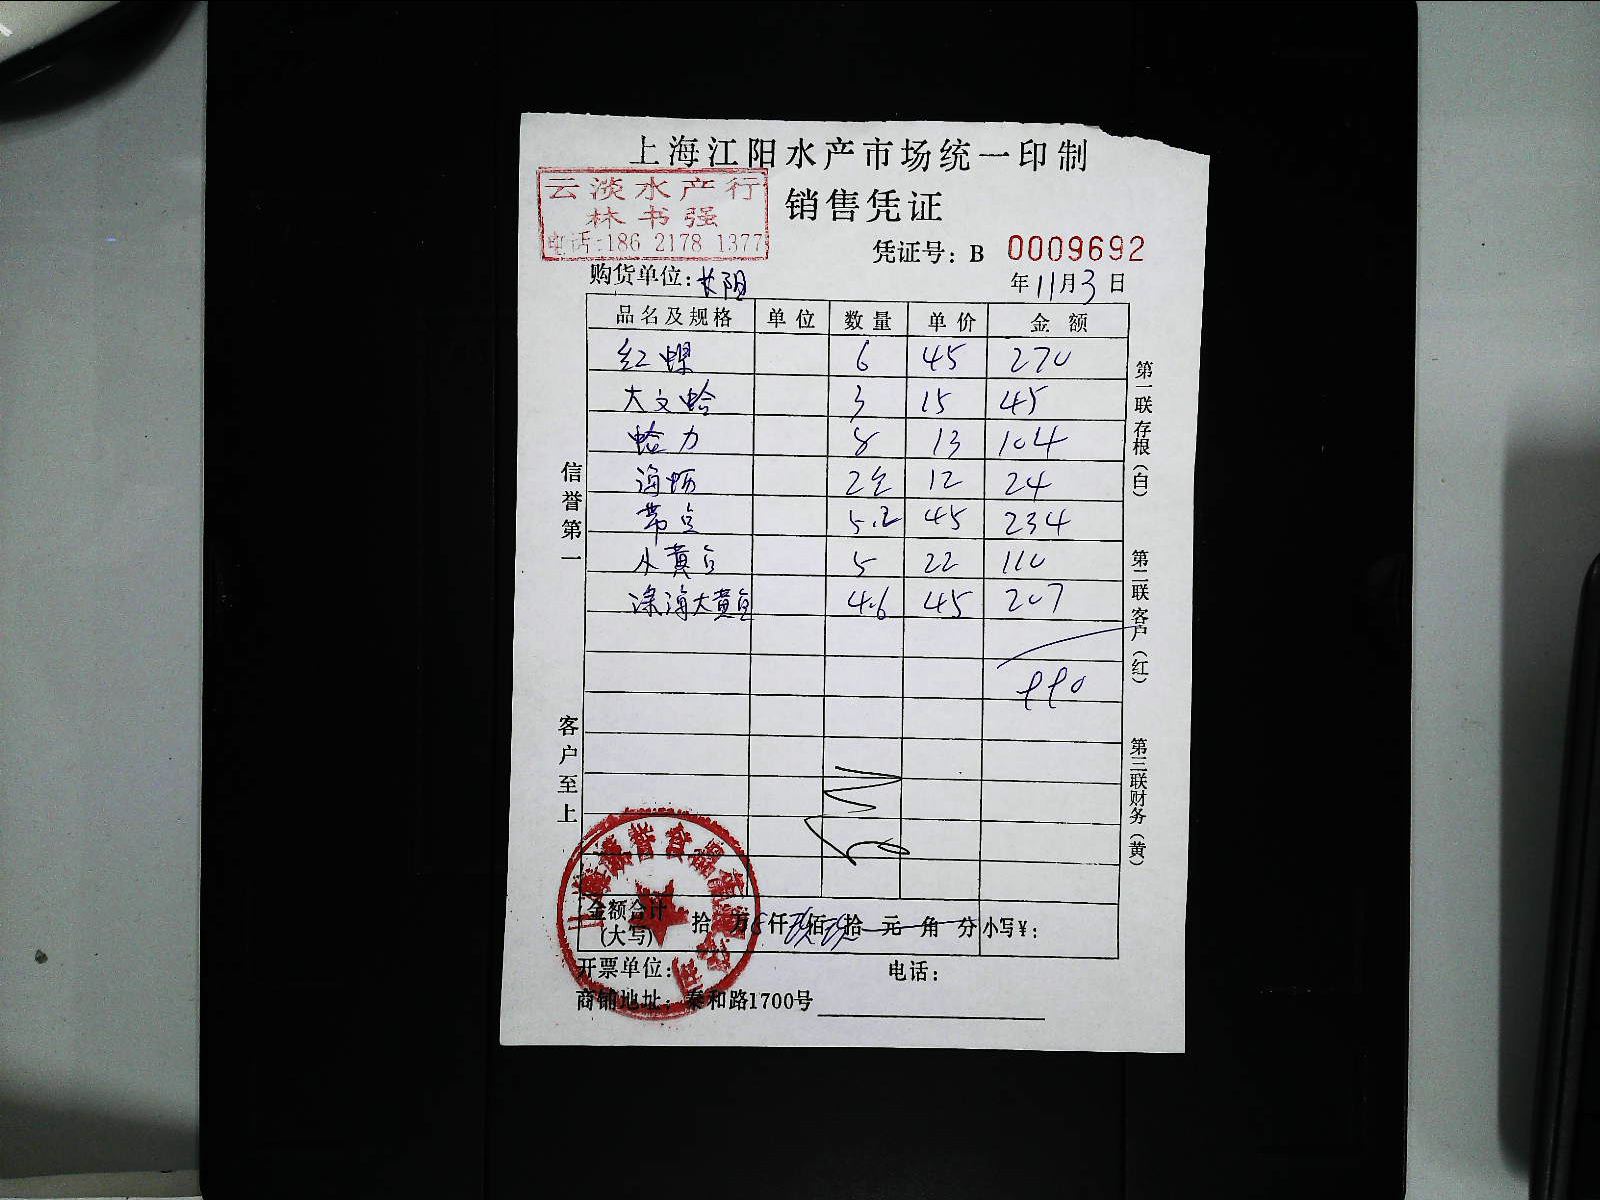 上海江阳水产市场统一印制
云淡水产行
林书强
电话:186 2178 1377
销售凭证
凭证号: B 0009692
购货单位: 长阳
年11月3日
品名及规格 单位 数量 单价 金额
红螺 6 45 270
大文蛤 3 15 45
蛤力 8 13 104
海蛎 2 12 24
带鱼 5.2 45 234
小黄鱼 5 22 110
深海大黄鱼 4.6 45 207
990
信誉第一
客户至上
第一联存根(白)
第二联客户(红)
第三联财务(黄)
金额合计(大写) 拾 万 仟 玖佰 玖拾 元 角 分 小写¥:
开票单位: 电话:
商铺地址: 泰和路1700号